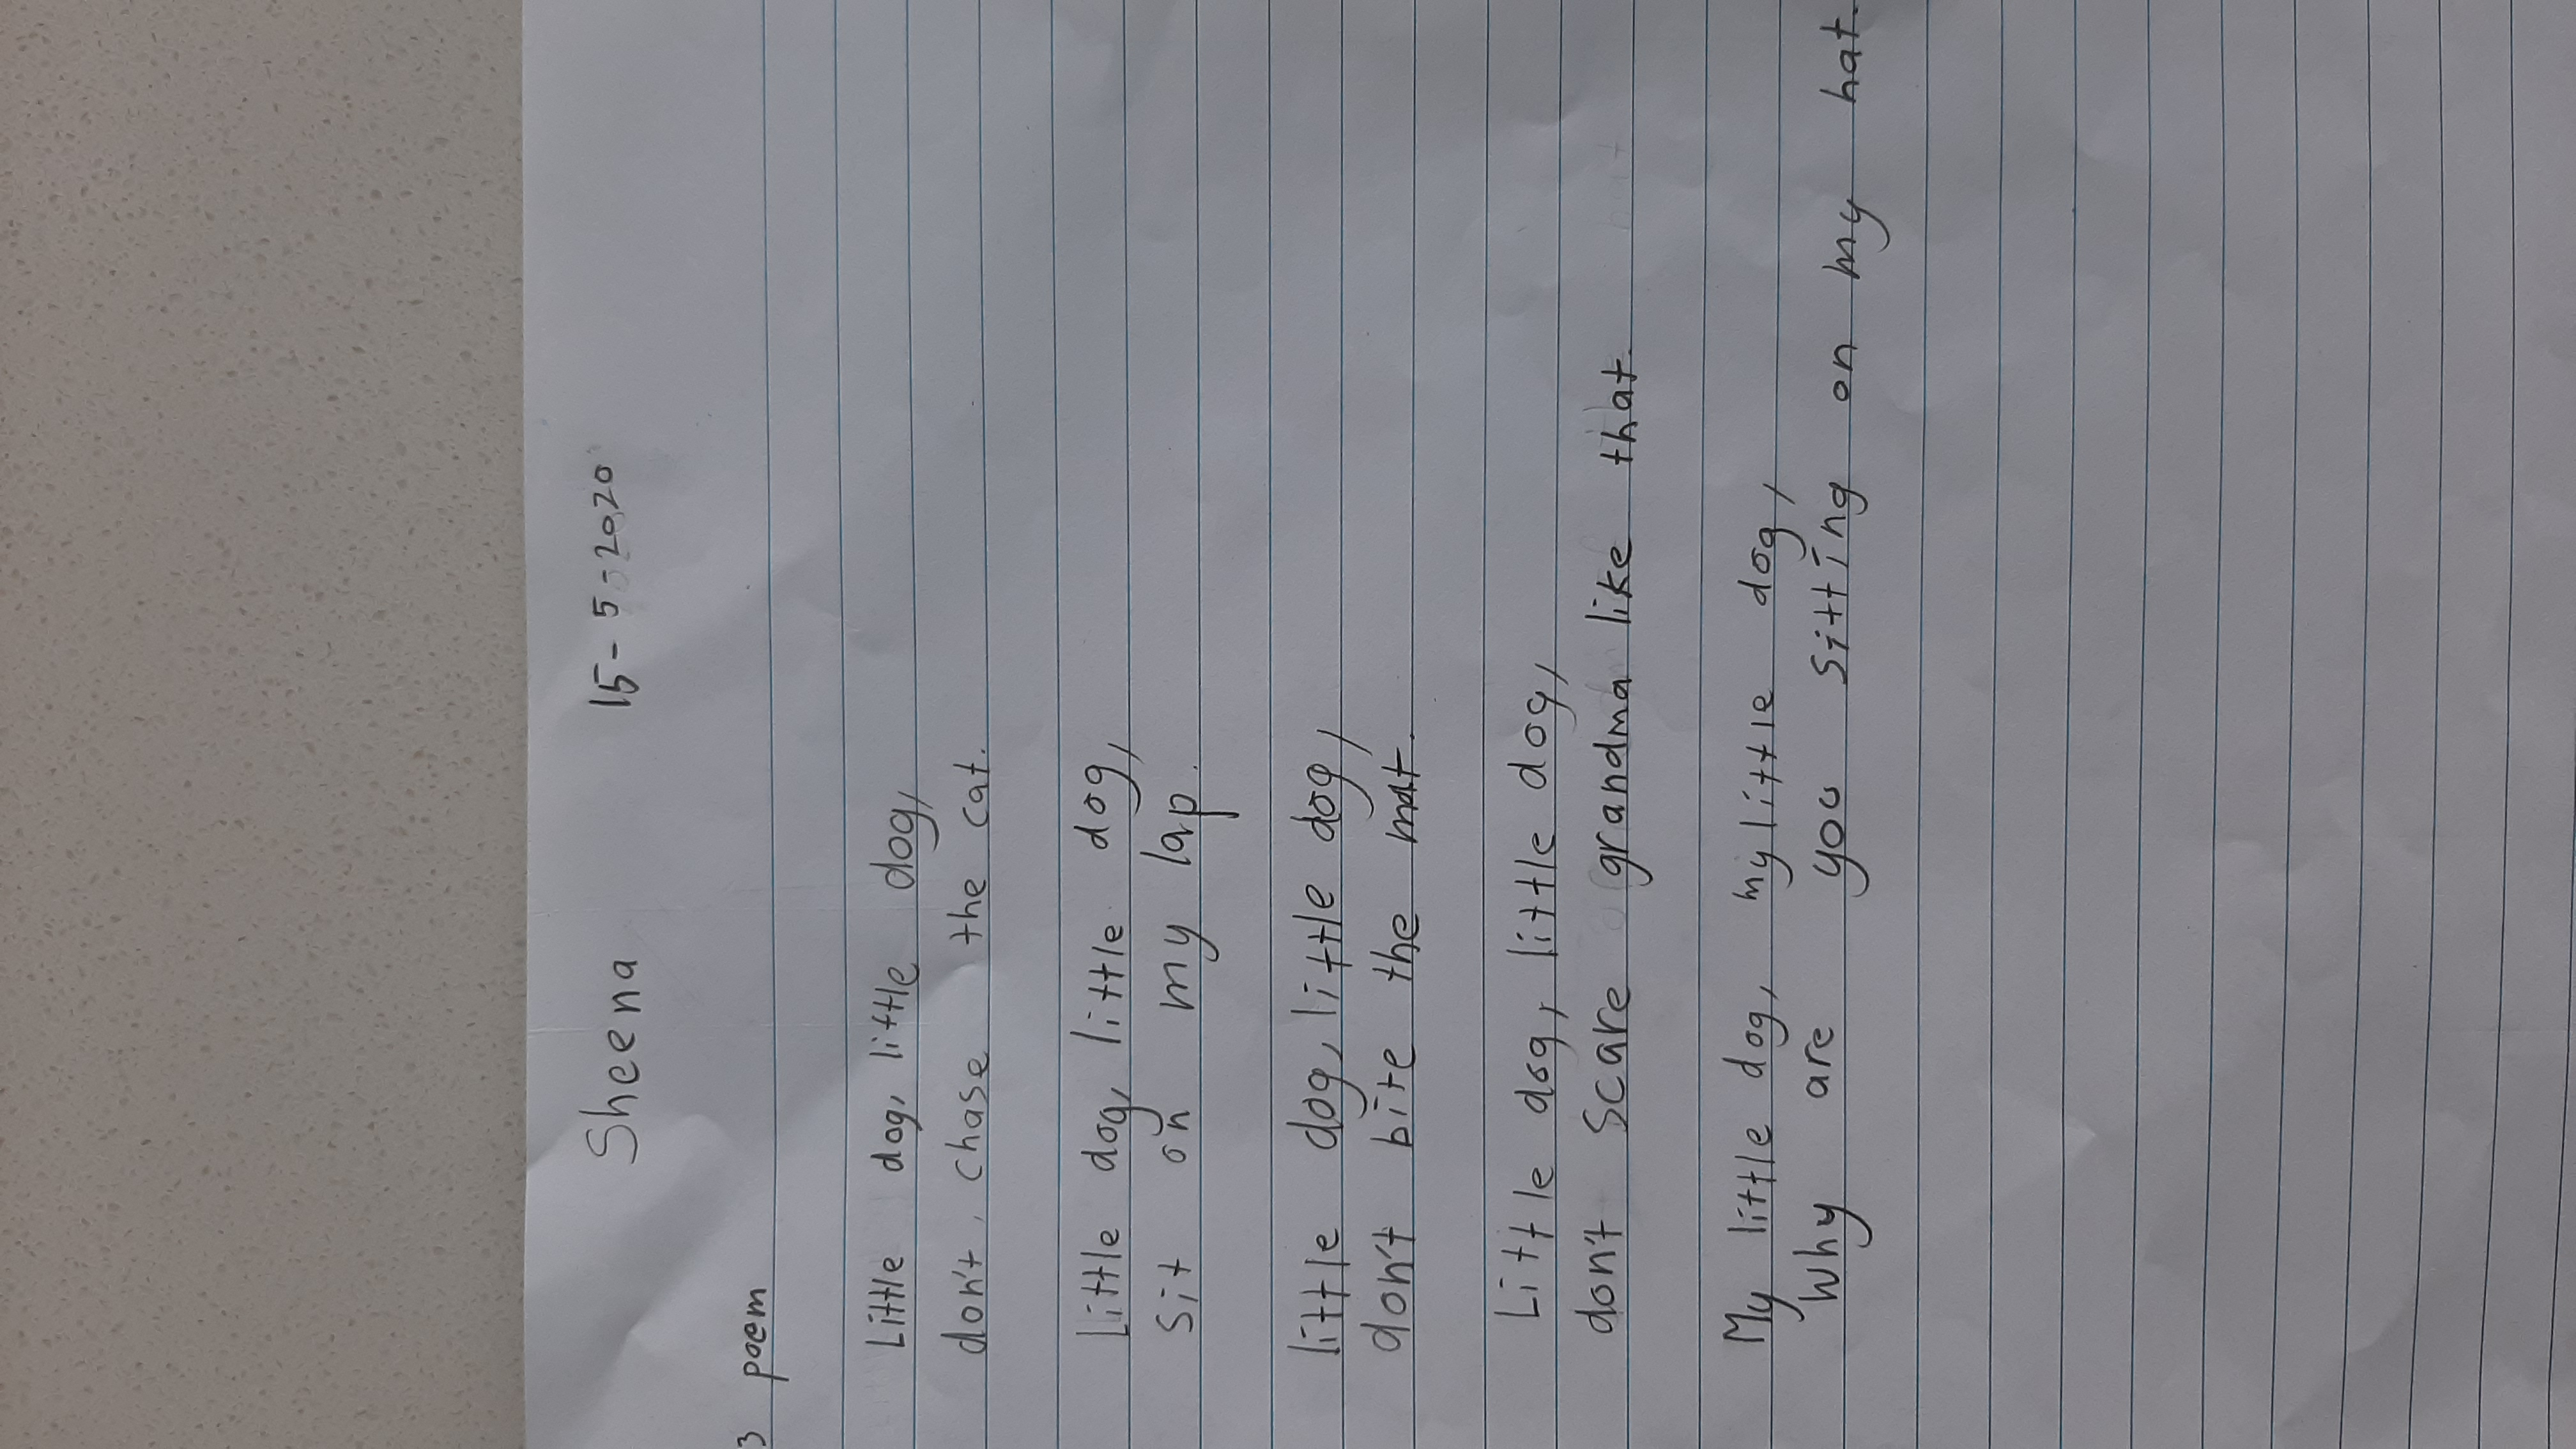 Sheena 15-5-2020
3 poem
Little dog, little dog,
don't chase the cat.
Little dog, little dog,
Sit on my lap.
little dog, little dog,
don't bite the mat.
Little dog, little dog,
don't scare grandma like that.
My little dog, my little dog,
Why are you sitting on my hat.